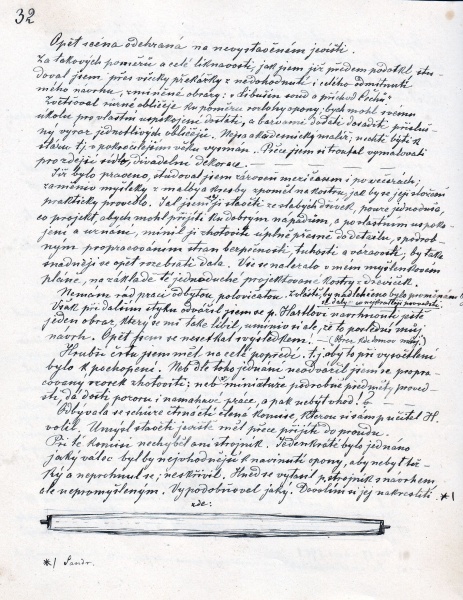 32
Opět scéna odehraná na nevystačeném jevišti.
Za takových poměrů a celé liknavosti, jak jsem již předem podotkl, stu-
doval jsem přes všecky překážky z nedohodnutí i celého odmítnutí
mého návrhu, zmíněné obrazy: "Libušin soud a příchod Čechů"
Zvětšoval různé obličeje ku poměru rozlohy opony, bych mohl svému
úkolu pro vlastní uspokojení dostáti, a barvami dotáti docíliti přísluš-
ný výraz jednotlivých obličejů. Nejsa akademický malíř, nechtě být k
stáru, t.j. v pokročilejším věku vysmán. Přece jsem si troufal vymalovati
pro zdejší sídlo, divadelní dekorace.
Již bylo pracováno, studoval jsem zároveň mezičasem i po večerách,
zaměniv myšlenky z malby a kresby zpoměl na kostru, jak by se její složení
prakticky provedlo. Jal jsem ji stavěti ze slabých dřívek, pouze jednoduše,
co projekt, abych mohl přijíti ku dobrým nápadům, a po vlastním uspoko-
jení a uznání, mínil ji zhotoviti úplně přesně do detailu, s podrob-
ným propracováním stran bezpečnosti, tuhosti a vázanosti, by také
snadněji se opět rozebrati dala. Vše se nalezalo v mém myšlenkovém
pláně, na základě té jednoduché projektované kostry z dřevíček.
Nemám rád práci odbytou, polovičatou. Zvláště, by
Však při dalším styku odvážil jsem se p. Hartlovi navrhnouti ještě
jeden obraz, který se mi také líbil, umíniv si ale, že to poslední můj
návrh. Opět jsem se nesetkal s výsledkem! — (Přes Kde domov můj.)
Hrubší črtu jsem měl na celé popředě. T.j. aby to při vysvětlení
bylo k pochopení. Neb dle toho jednání neodvážil jsem se propra-
covaný vzorek zhotoviti; neb v miniatuře podrobné předměty proved-
sti, dá dosti pozoru i namáhavé práce, a pak nebýt vhod! ?
Odbývala se schůze čtrnáctičlenné komise, kterou si sám p. učitel H.
volil. Umysl stavěti jeviště měl přece přijíti do proudu.
Při té komisi nechyběl ani strojník. Tedenkráte bylo jednáno
jaký válec byl by nejvhodnější k navinutí opony, aby nebyl těž-
ký a neprohnul se, neskřivil. Hned se vytasil p. strojník s návrhem,
ale nepromyšleným. Vypodobňoval jaký. Dovolím si jej nakresliti *)
zde:
*) Šandr.